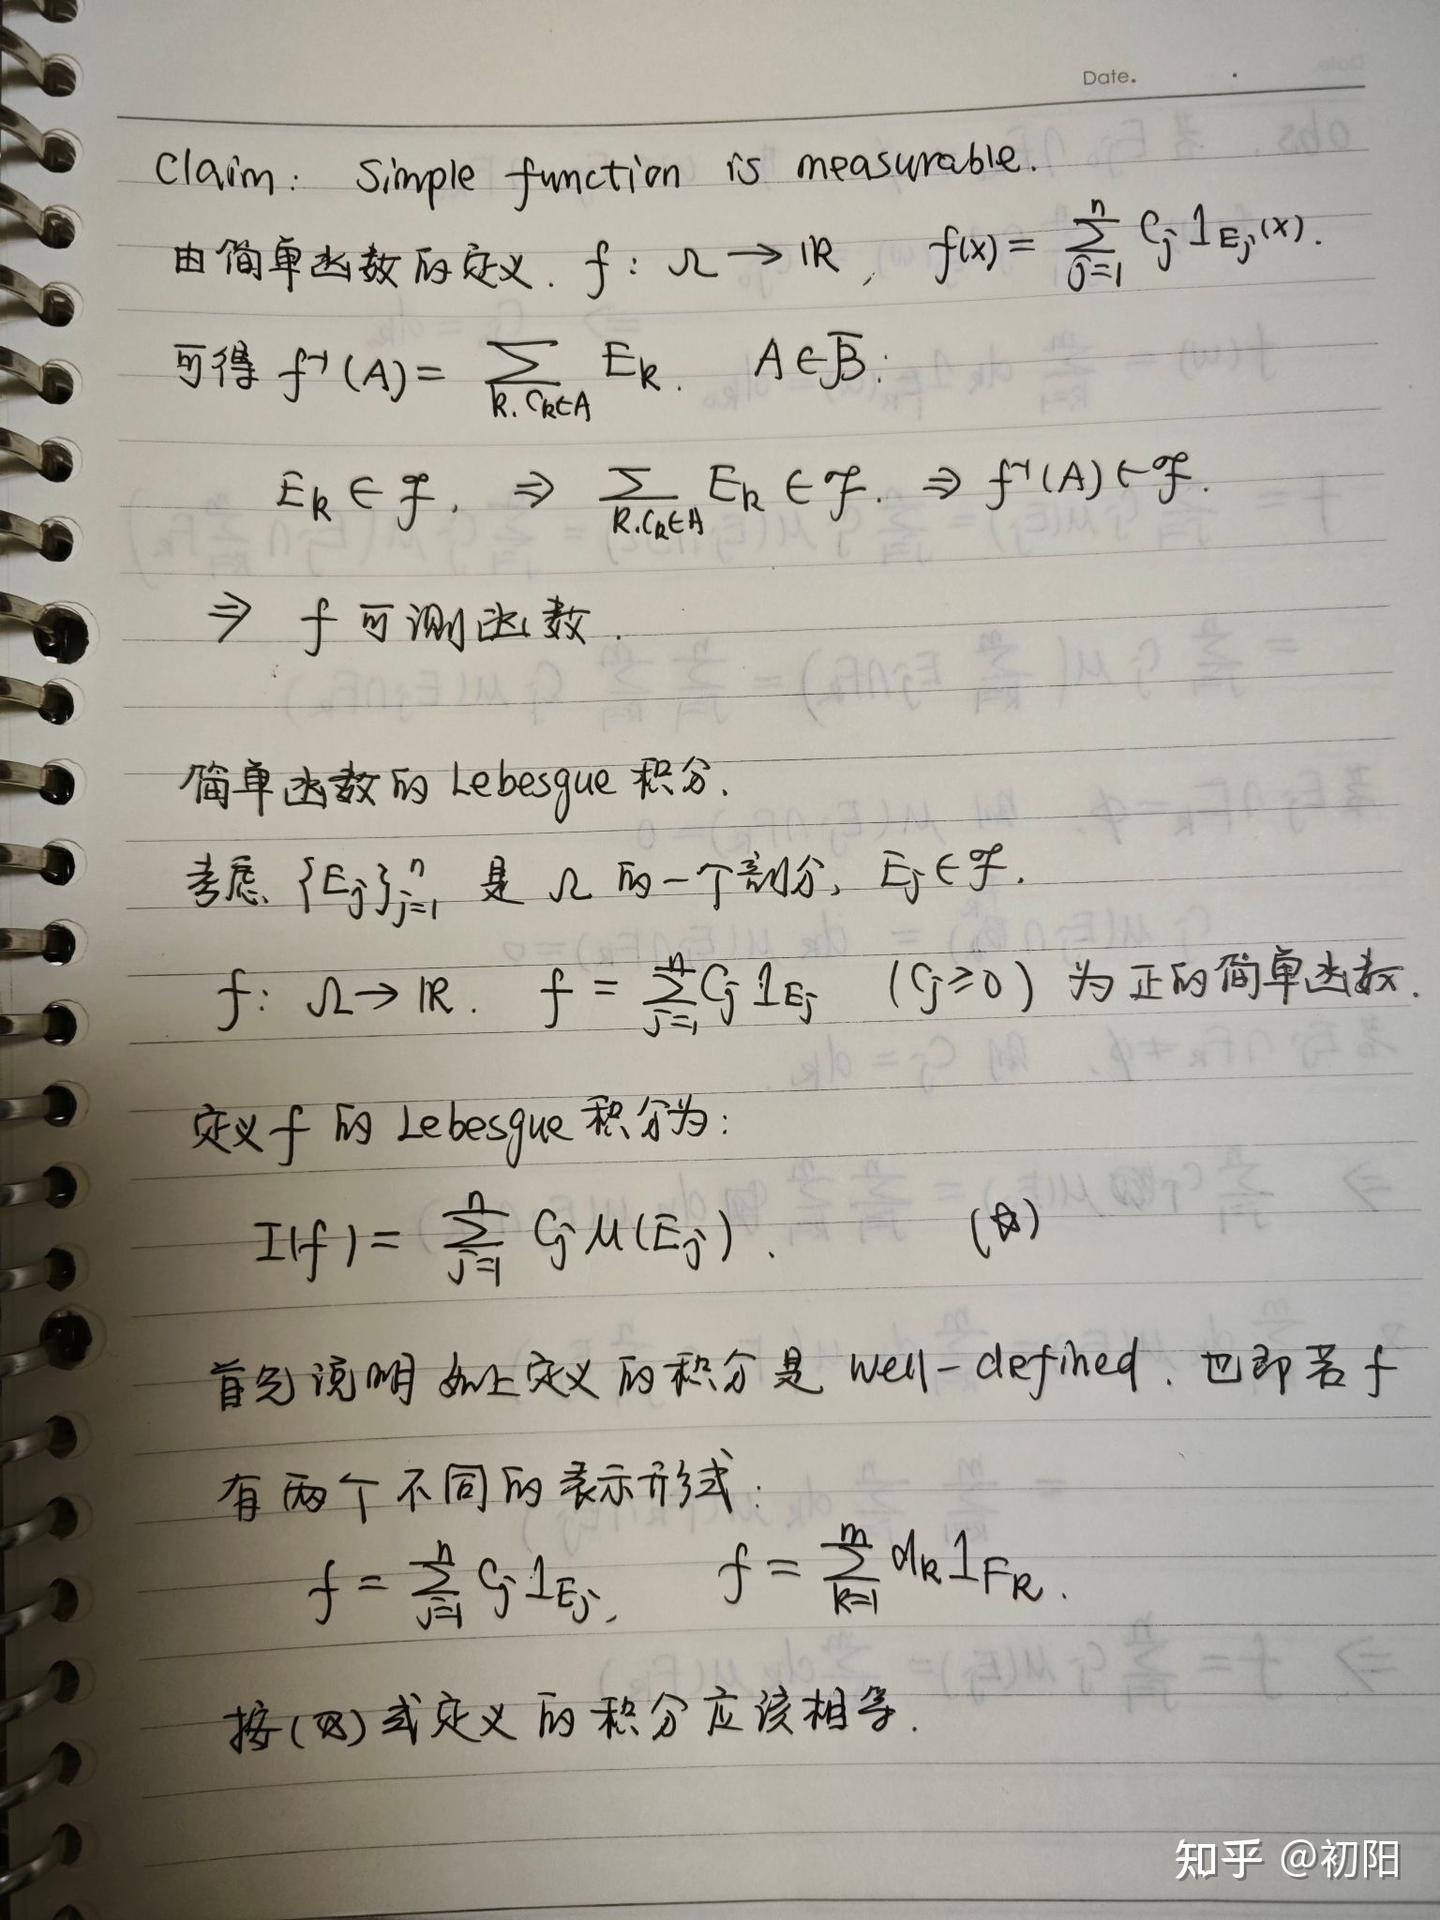 Date.
Claim: Simple function is measurable.
由简单函数的定义. f: Ω → ℝ, f(x) = ∑_{j=1}^{n} C_j 1_{E_j}(x).
可得 f⁻¹(A) = ∑_{k. C_k∈A} E_k. A ∈ B̄:
E_k ∈ ℱ. ⇒ ∑_{k. C_k∈A} E_k ∈ ℱ. ⇒ f⁻¹(A) ∈ ℱ.
⇒ f 可测函数.
简单函数的 Lebesgue 积分.
考虑 {E_j}_{j=1}^{n} 是 Ω 的一个剖分, E_j ∈ ℱ.
f: Ω → ℝ. f = ∑_{j=1}^{n} C_j 1_{E_j} (C_j ≥ 0) 为正的简单函数.
定义 f 的 Lebesgue 积分为:
I(f) = ∑_{j=1}^{n} C_j μ(E_j). (☆)
首先说明如上定义的积分是 well-defined. 也即若 f
有两个不同的表示形式:
f = ∑_{j=1}^{n} C_j 1_{E_j}, f = ∑_{k=1}^{m} d_k 1_{F_k}.
按(☆)式定义的积分应该相等.
知乎 @初阳